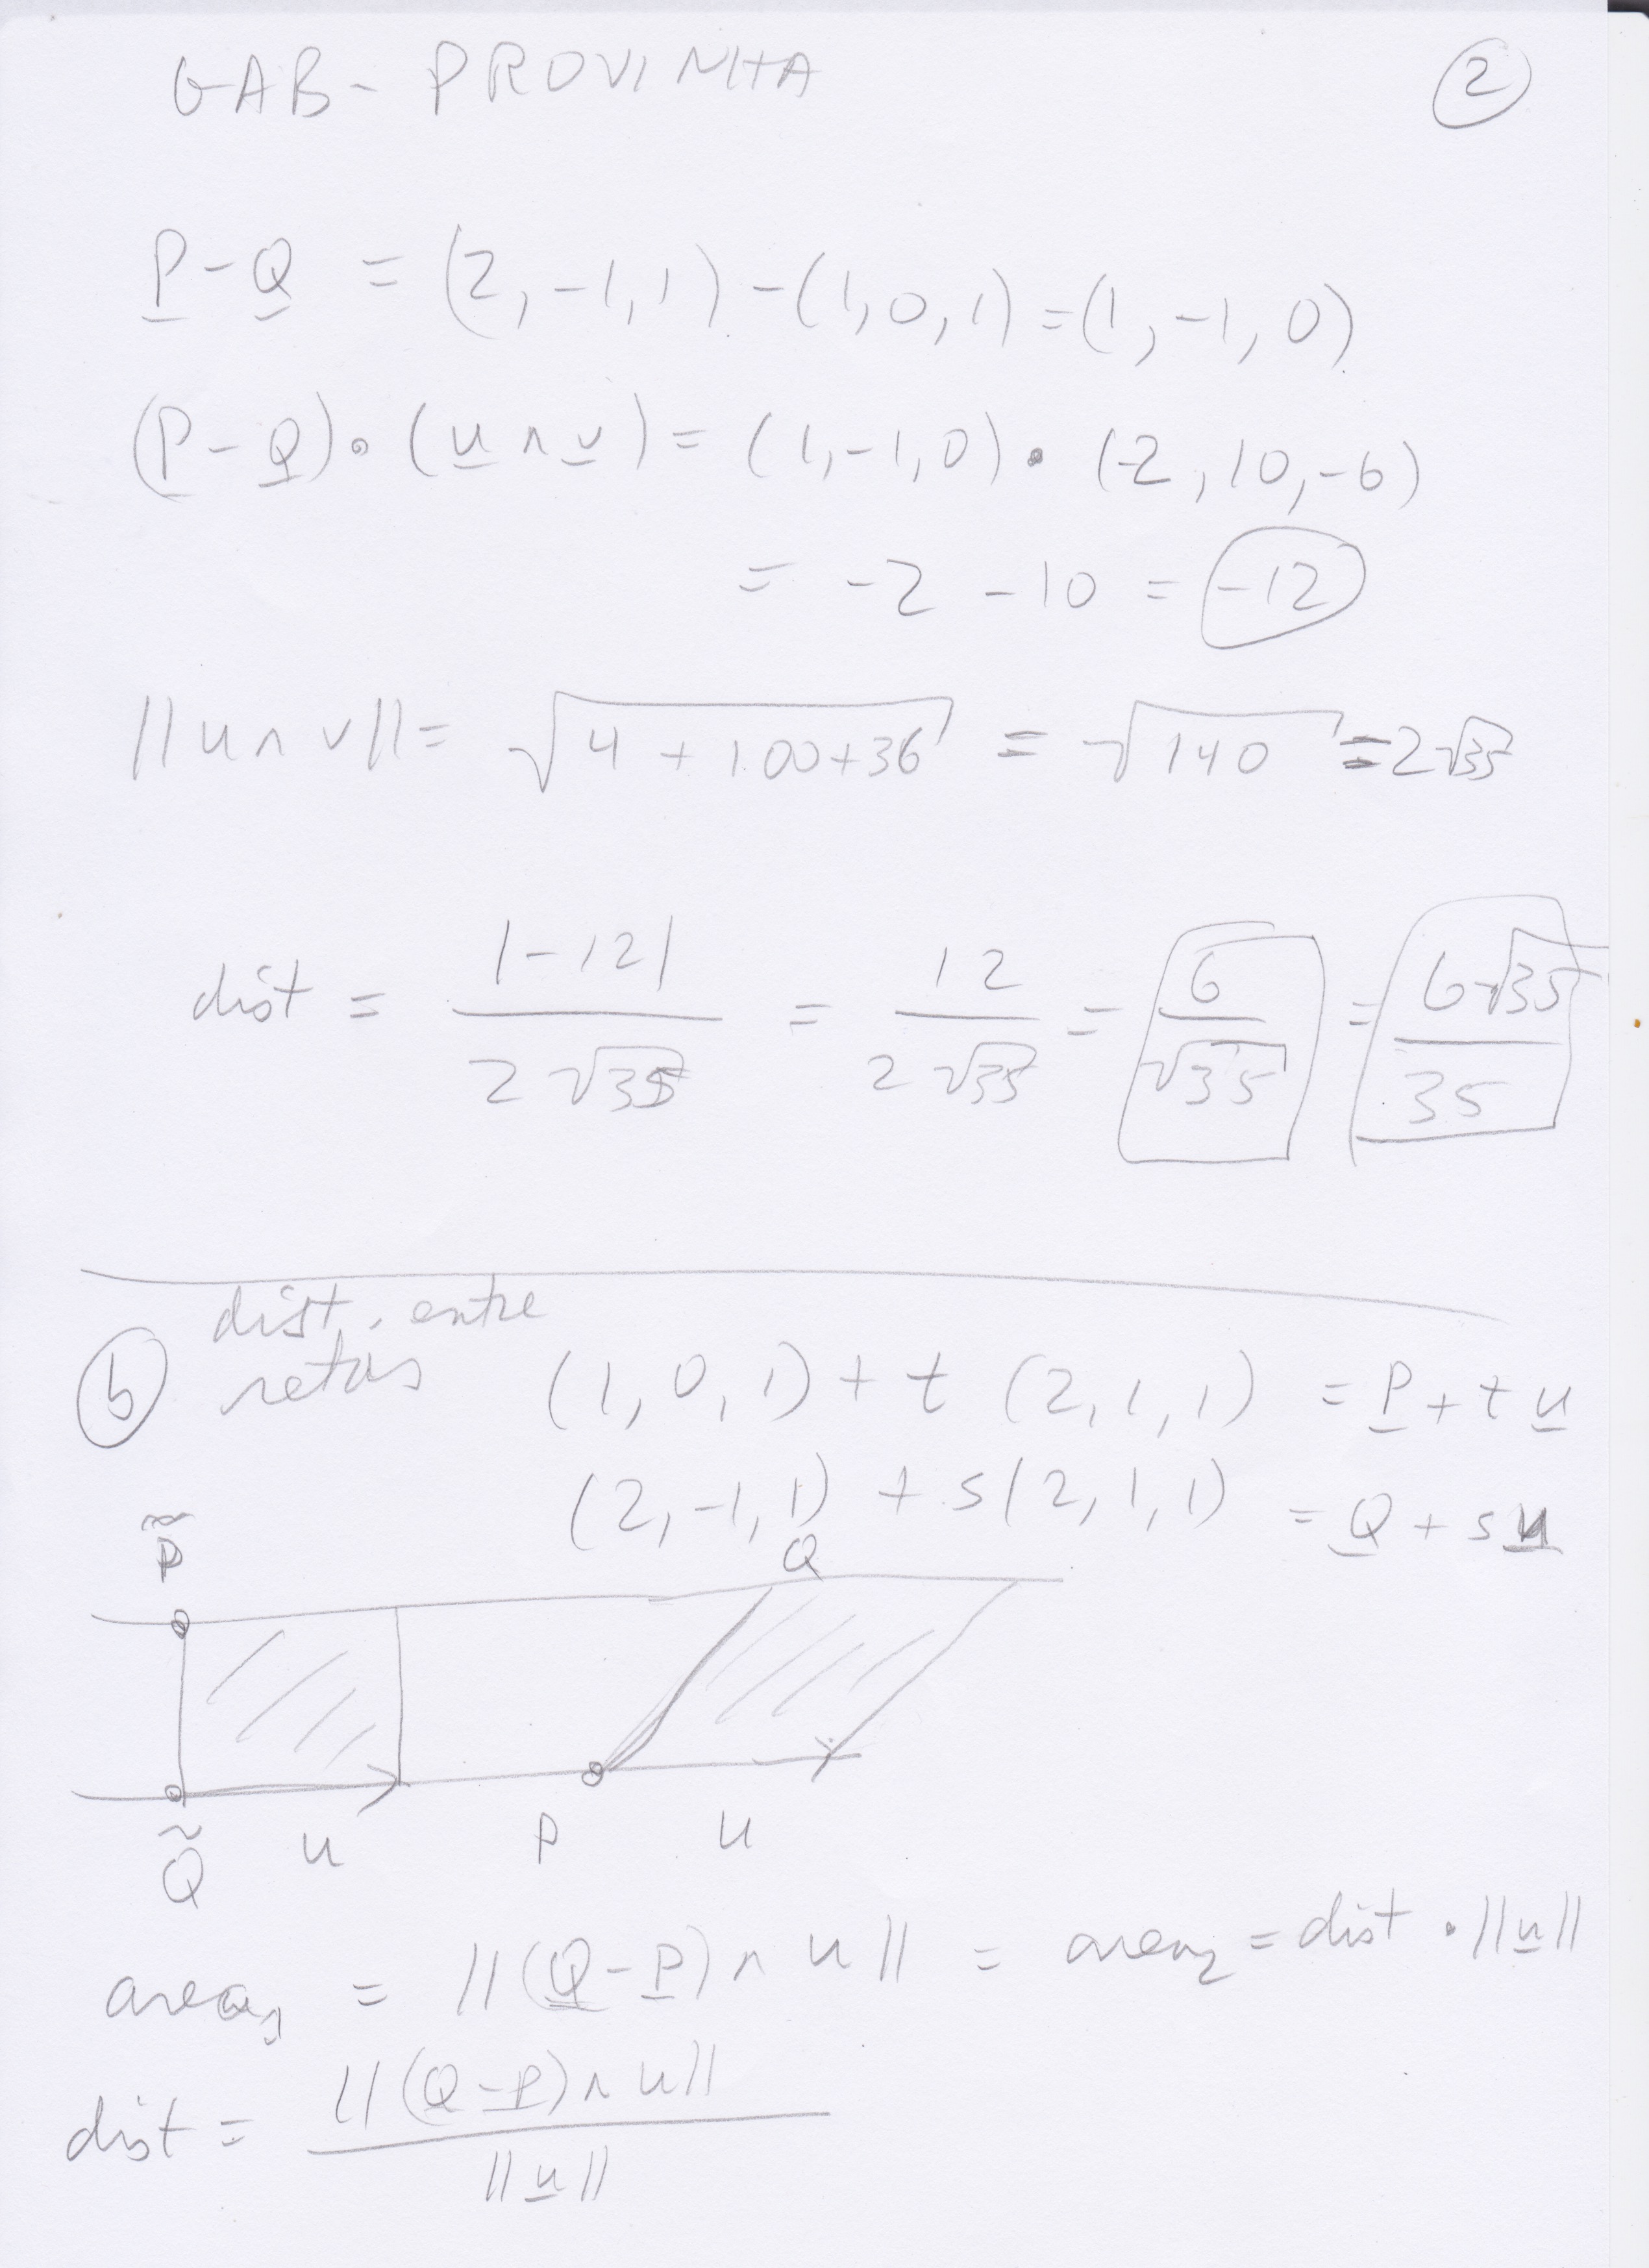 GAB - PROVINHA
2
P - Q = (2, -1, 1) - (1, 0, 1) = (1, -1, 0)
(P - Q) • (u ∧ v) = (1, -1, 0) • (-2, 10, -6)
= -2 - 10 = -12
||u ∧ v|| = √(4 + 100 + 36) = √140 = 2√35
dist = |-12| / 2√35 = 12 / 2√35 = 6 / √35 = 6√35 / 35
dist. entre
b retas (1, 0, 1) + t (2, 1, 1) = P + t u
(2, -1, 1) + s (2, 1, 1) = Q + s u
P̃
Q
Q̃ u P u
area₁ = ||(Q - P) ∧ u|| = area₂ = dist • ||u||
dist = ||(Q - P) ∧ u|| / ||u||